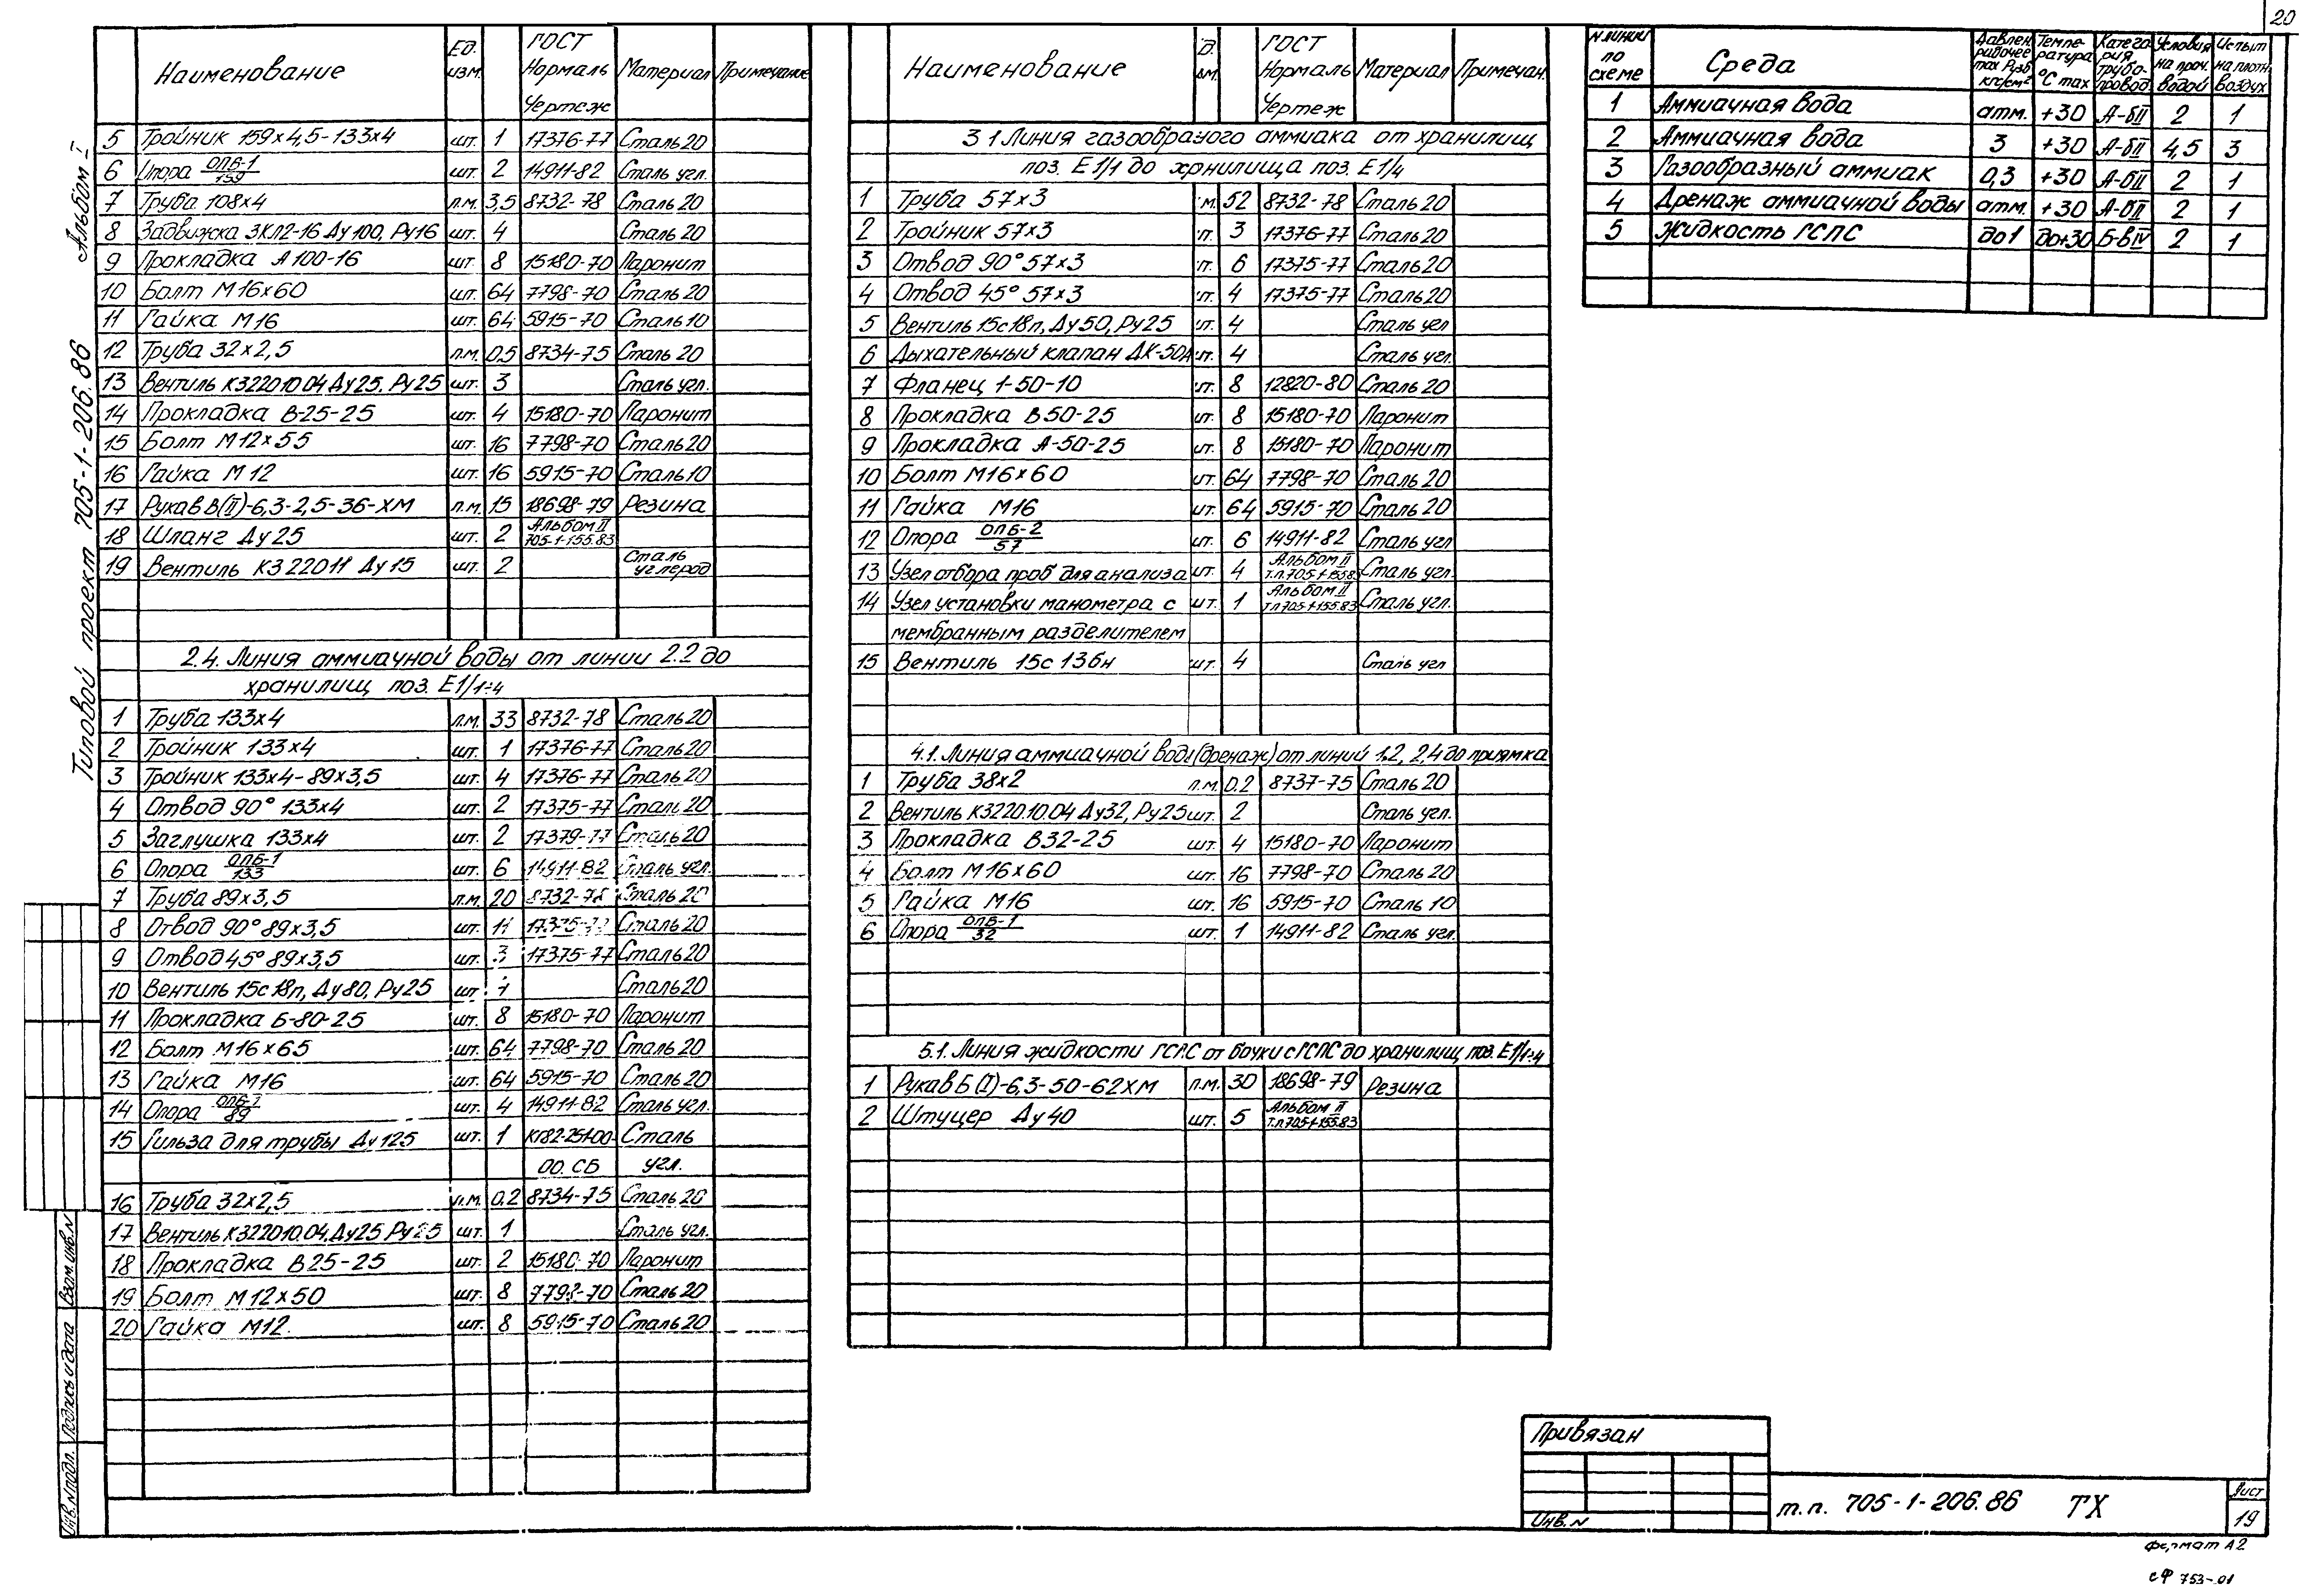 20
Альбом I
Типовой проект 705-1-206.86
Наименование Ед. изм. ГОСТ Нормаль Чертеж Материал Примечание
5 Тройник 159х4,5-133х4 шт. 1 17376-77 Сталь 20
6 Опора ОПБ-1/159 шт. 2 14911-82 Сталь угл.
7 Труба 108х4 п.м. 3,5 8732-78 Сталь 20
8 Задвижка ЗКЛ2-16 Ду100, Ру16 шт. 4 Сталь 20
9 Прокладка А100-16 шт. 8 15180-70 Паронит
10 Болт М16х60 шт. 64 7798-70 Сталь 20
11 Гайка М16 шт. 64 5915-70 Сталь 10
12 Труба 32х2,5 п.м. 0.5 8734-75 Сталь 20
13 Вентиль КЗ22010.04 Ду25, Ру25 шт. 3 Сталь угл.
14 Прокладка В-25-25 шт. 4 15180-70 Паронит
15 Болт М12х55 шт. 16 7798-70 Сталь 20
16 Гайка М12 шт. 16 5915-70 Сталь 10
17 Рукав В(II)-6,3-2,5-36-ХМ п.м. 15 18698-79 Резина
18 Шланг Ду25 шт. 2 Альбом II 705-1-155.83
19 Вентиль КЗ 22011 Ду15 шт. 2 Сталь углерод
2.4. Линия аммиачной воды от линии 2.2 до
хранилищ поз. Е1/1÷4
1 Труба 133х4 п.м. 33 8732-78 Сталь 20
2 Тройник 133х4 шт. 1 17376-77 Сталь 20
3 Тройник 133х4-89х3,5 шт. 4 17376-77 Сталь 20
4 Отвод 90° 133х4 шт. 2 17375-77 Сталь 20
5 Заглушка 133х4 шт. 2 17379-77 Сталь 20
6 Опора ОПБ-1/133 шт. 6 14911-82 Сталь угл.
7 Труба 89х3,5 п.м. 20 8732-78 Сталь 20
8 Отвод 90° 89х3,5 шт. 11 17375-77 Сталь 20
9 Отвод 45° 89х3,5 шт. 3 17375-77 Сталь 20
10 Вентиль 15с18п, Ду80, Ру25 шт. Сталь 20
11 Прокладка Б-80-25 шт. 8 15180-70 Паронит
12 Болт М16х65 шт. 64 7798-70 Сталь 20
13 Гайка М16 шт. 64 5915-70 Сталь 20
14 Опора ОПБ-1/89 шт. 4 14911-82 Сталь угл.
15 Гильза для трубы Ду125 шт. 1 Сталь
00.СБ угл.
16 Труба 32х2,5 п.м. 0.2 8734-75 Сталь 20
17 Вентиль КЗ22010.04, Ду25 Ру25 шт. 1 Сталь угл.
18 Прокладка В25-25 шт. 2 15180-70 Паронит
19 Болт М12х50 шт. 8 7798-70 Сталь 20
20 Гайка М12. шт. 8 5915-70 Сталь 20
Наименование ГОСТ Нормаль Чертеж Материал Примечан.
3.1 Линия газообразного аммиака от хранилищ
поз. Е1/1 до хранилища поз. Е1/4
1 Труба 57х3 м. 52 8732-78 Сталь 20
2 Тройник 57х3 шт. 3 17376-77 Сталь 20
3 Отвод 90° 57х3 шт. 6 17375-77 Сталь 20
4 Отвод 45° 57х3 шт. 4 17375-77 Сталь 20
5 Вентиль 15с18п, Ду50, Ру25 шт. 4 Сталь угл
6 Дыхательный клапан ДК-50А шт. 4 Сталь угл.
7 Фланец 1-50-10 шт. 8 12820-80 Сталь 20
8 Прокладка В50-25 шт. 8 15180-70 Паронит
9 Прокладка А-50-25 шт. 8 15180-70 Паронит
10 Болт М16х60 шт. 64 7798-70 Сталь 20
11 Гайка М16 шт. 64 5915-70 Сталь 20
12 Опора ОПБ-2/57 шт. 6 14911-82 Сталь угл
13 Узел отбора проб для анализа шт. 4 Альбом II т.п.705-1-155.83 Сталь угл.
14 Узел установки манометра с шт. 1 Альбом II т.п.705-1-155.83 Сталь угл.
мембранным разделителем
15 Вентиль 15с13бн шт. 4 Сталь угл
4.1. Линия аммиачной воды (дренаж) от линий 1.2, 2,4 до приямка
1 Труба 38х2 п.м. 0.2 8737-75 Сталь 20
2 Вентиль КЗ220.10.04 Ду32, Ру25 шт. 2 Сталь угл.
3 Прокладка В32-25 шт. 4 15180-70 Паронит
4 Болт М16х60 шт. 16 7798-70 Сталь 20
5 Гайка М16 шт. 16 5915-70 Сталь 10
6 Опора ОПБ-1/32 шт. 1 14911-82 Сталь угл.
5.1. Линия жидкости ГСПС от бочки с ГСПС до хранилищ поз. Е1/1÷4
1 Рукав Б(I)-6,3-50-62ХМ п.м. 30 18698-79 Резина
2 Штуцер Ду40 шт. 5 Альбом II т.п.705-1-155.83
N линии по схеме Среда Давлен. рабочее max Ризб кгс/см² Темпе-ратура °С max Катего-рия трубо-провод. Условия на проч. водой Испыт на плотн. воздух
1 Аммиачная вода атм. +30 А-бII 2 1
2 Аммиачная вода 3 +30 А-бII 4,5 3
3 Газообразный аммиак 0,3 +30 А-бII 2 1
4 Дренаж аммиачной воды атм. +30 А-бII 2 1
5 Жидкость ГСПС до 1 до+30 Б-вIV 2 1
Привязан
Инв. N
т.п. 705-1-206.86 ТХ
Лист
19
Формат А2
сФ 753-01
Взам. инв. N
Подпись и дата
Инв. N подл.